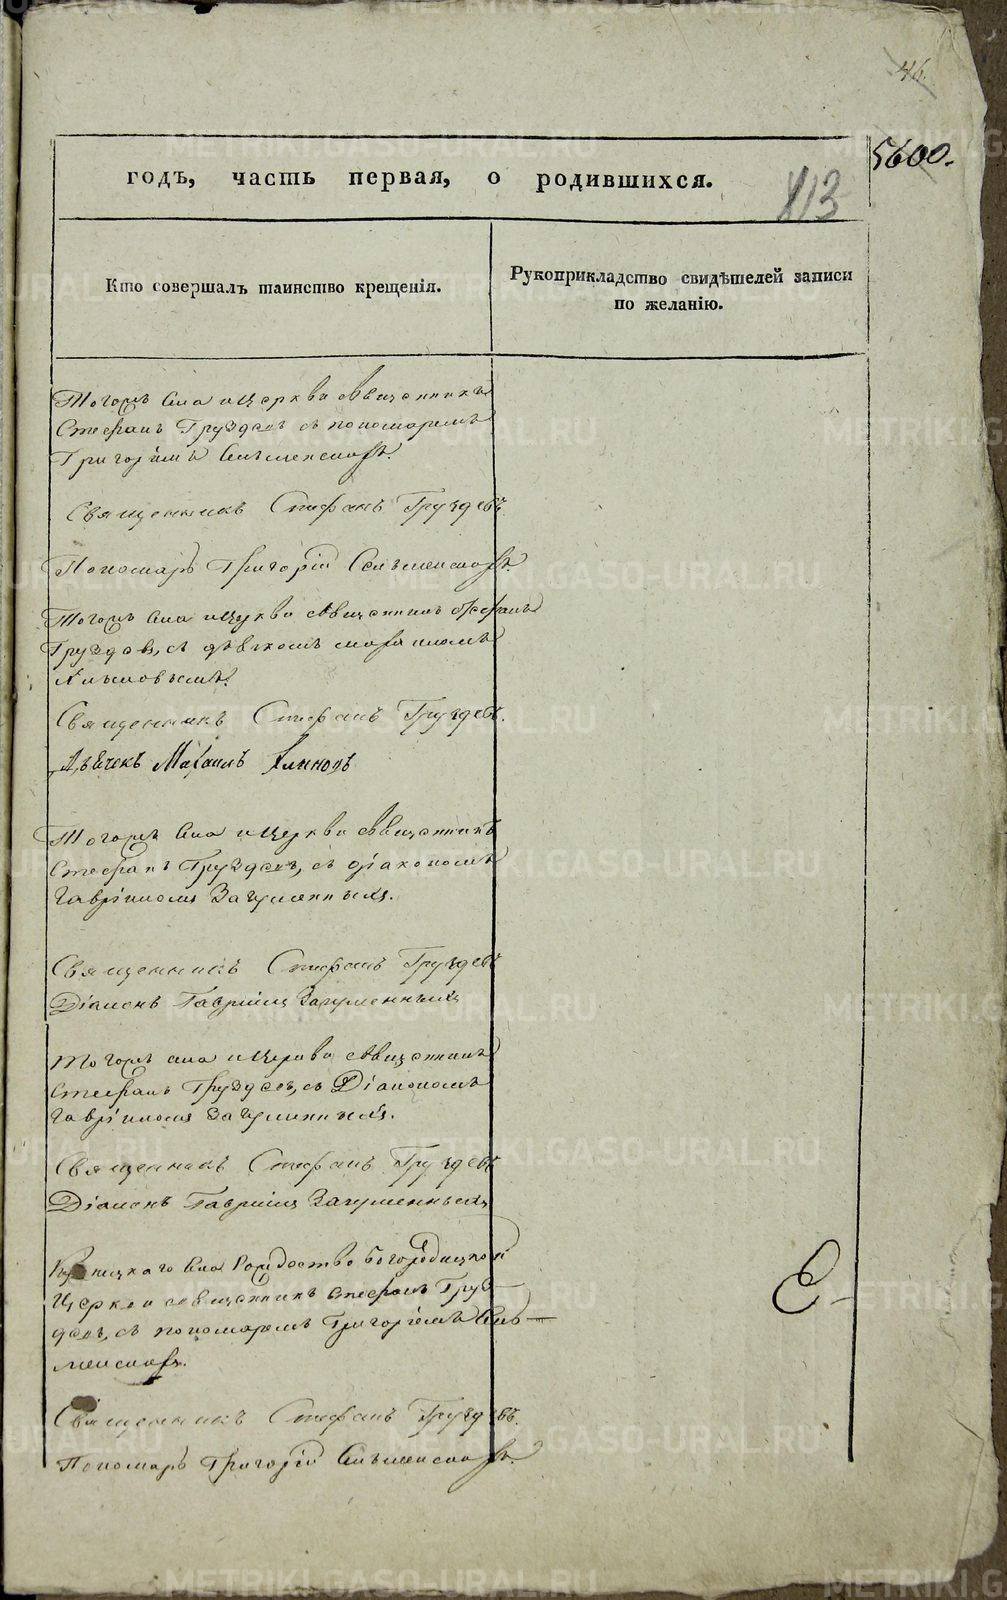 46.
5600.
годъ, часть первая, о родившихся.
813
Кто совершалъ таинство крещенія.
Рукоприкладство свидѣтелей записи
по желанію.
Тогожъ села и церкви священникъ
Стефанъ Груздевъ съ пономаремъ
Григоріемъ
Священникъ Стефанъ Груздевъ
Пономарь Григорій
Тогожъ села и церкви священникъ Стефанъ
Груздев, съ дьячкомъ
Священникъ Стефанъ Груздевъ.
Дьячекъ Михаилъ
Тогожъ села и церкви священникъ
Стефанъ Груздевъ, съ діакономъ
Гавріиломъ Загуменныхъ.
Священникъ Стефанъ Груздевъ
Діаконъ Гавріилъ Загуменныхъ
Тогожъ села и церкви священникъ
Стефанъ Груздевъ, съ Діакономъ
Гавріиломъ Загуменныхъ.
Священникъ Стефанъ Груздевъ
Діаконъ Гавріилъ Загуменныхъ
села Рождество Богородицкой
Церкви священникъ Стефанъ Груз-
девъ, съ пономаремъ Григоріемъ
Священникъ Стефанъ Груздевъ.
Пономарь Григорій
METRIKI.GASO-URAL.RU